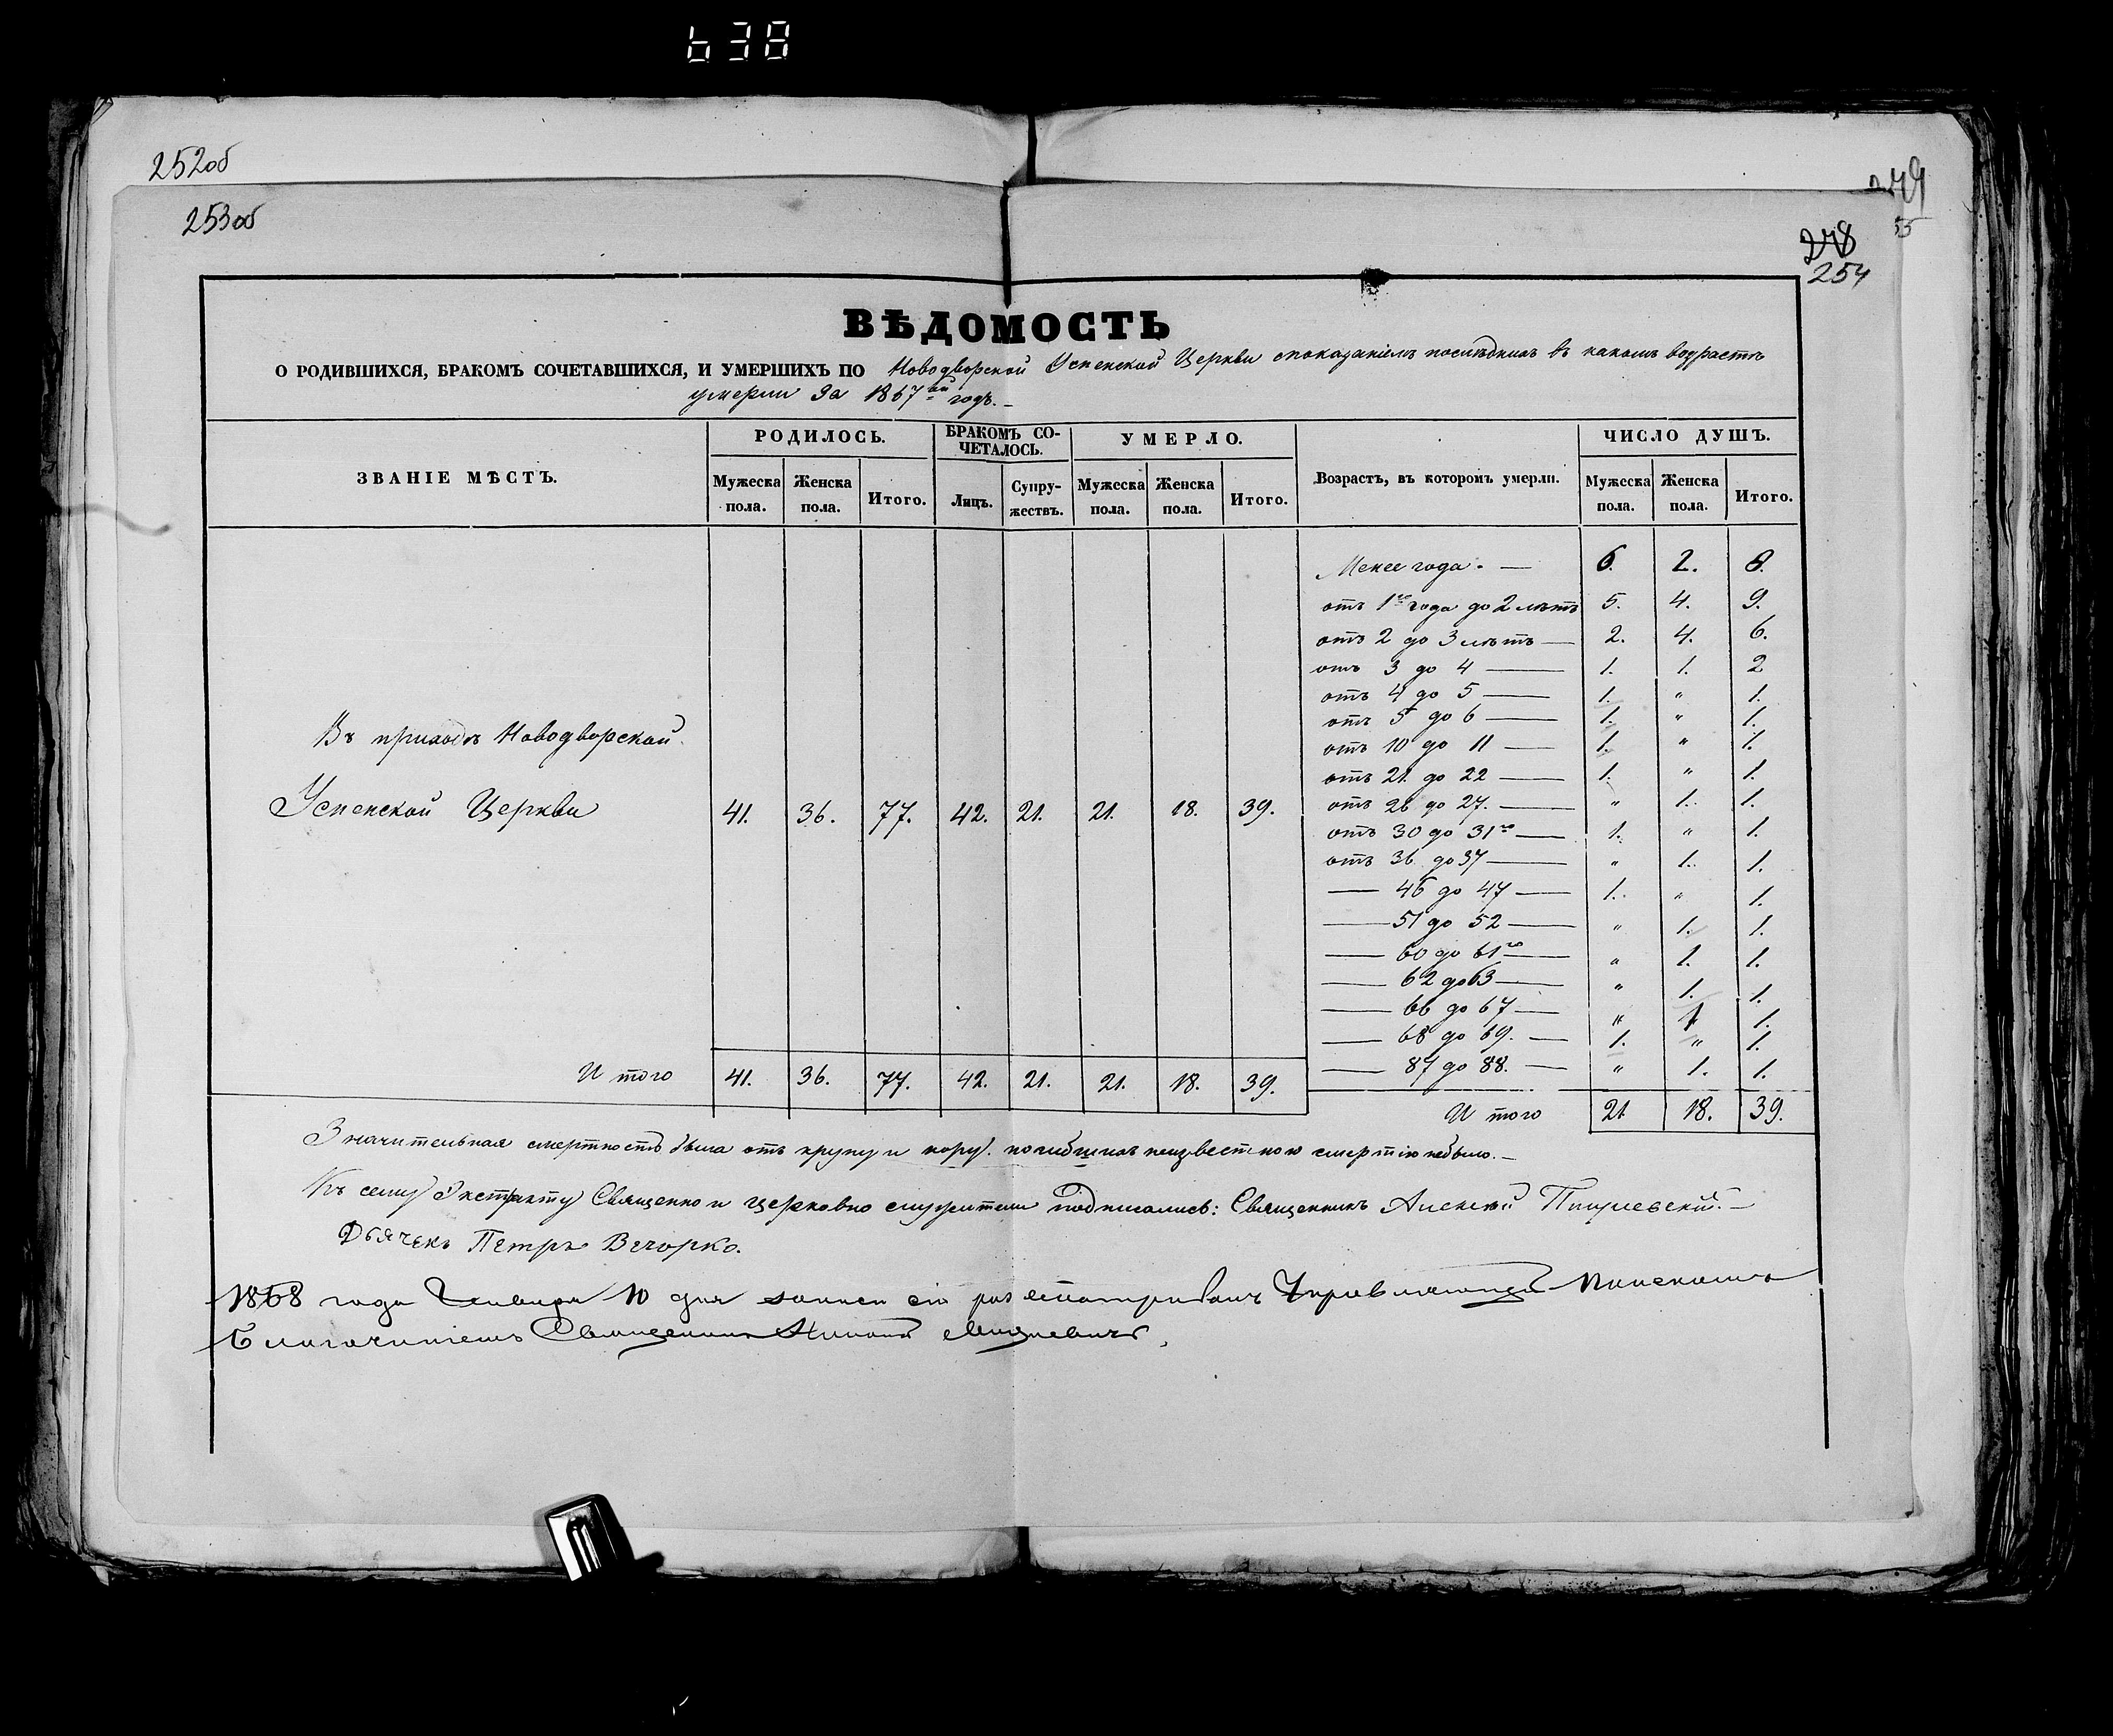 638
252об
253об
278
254
ВѢДОМОСТЬ
О РОДИВШИХСЯ, БРАКОМЪ СОЧЕТАВШИХСЯ, И УМЕРШИХЪ ПО Новодворской Успенской Церкви споказаніемъ послѣднихъ въ какомъ возрастѣ
умерли за 1867ый годъ.
ЗВАНІЕ МѢСТЪ.
РОДИЛОСЬ.
Мужеска пола. Женска пола. Итого.
БРАКОМЪ СО-
ЧЕТАЛОСЬ.
Лицъ. Супру-
жествъ.
УМЕРЛО.
Мужеска пола. Женска пола. Итого.
Возрастъ, въ которомъ умерли.
ЧИСЛО ДУШЪ.
Мужеска пола. Женска пола. Итого.
Въ приходѣ Новодворской
Успенской Церкви 41. 36. 77. 42. 21. 21. 18. 39.
Итого 41. 36. 77. 42. 21. 21. 18. 39.
Менее года. — 6. 2. 8.
отъ 1го года до 2 лѣтъ 5. 4. 9.
отъ 2 до 3 лѣтъ — 2. 4. 6.
отъ 3 до 4 — 1. 1. 2
отъ 4 до 5 — 1. " 1.
отъ 5 до 6 — 1. " 1.
отъ 10 до 11 — 1. " 1.
отъ 21. до 22 — 1. " 1.
отъ 26 до 27. — " 1. 1.
отъ 30 до 31го — 1. " 1.
отъ 36 до 37 — " 1. 1.
— 46 до 47 — 1. " 1.
— 51 до 52 — " 1. 1.
— 60 до 61го — " 1. 1.
— 62 до 63 — " 1. 1.
— 66 до 67 — " 1 1.
— 68 до 69. — 1. " 1.
— 87 до 88. — " 1. 1.
Итого 21 18. 39.
Значительная смертность была отъ крупу и кору. погибшихъ неизвестною смертію небыло. —
Къ сему Экстракту Священно и церковно служители подписались: Священникъ Алексѣй —
Дьячекъ Петръ Вечорко.
1868 года Января 10 дня записи сіи разсматривалъ Управляющій
Благочиніемъ Священникъ